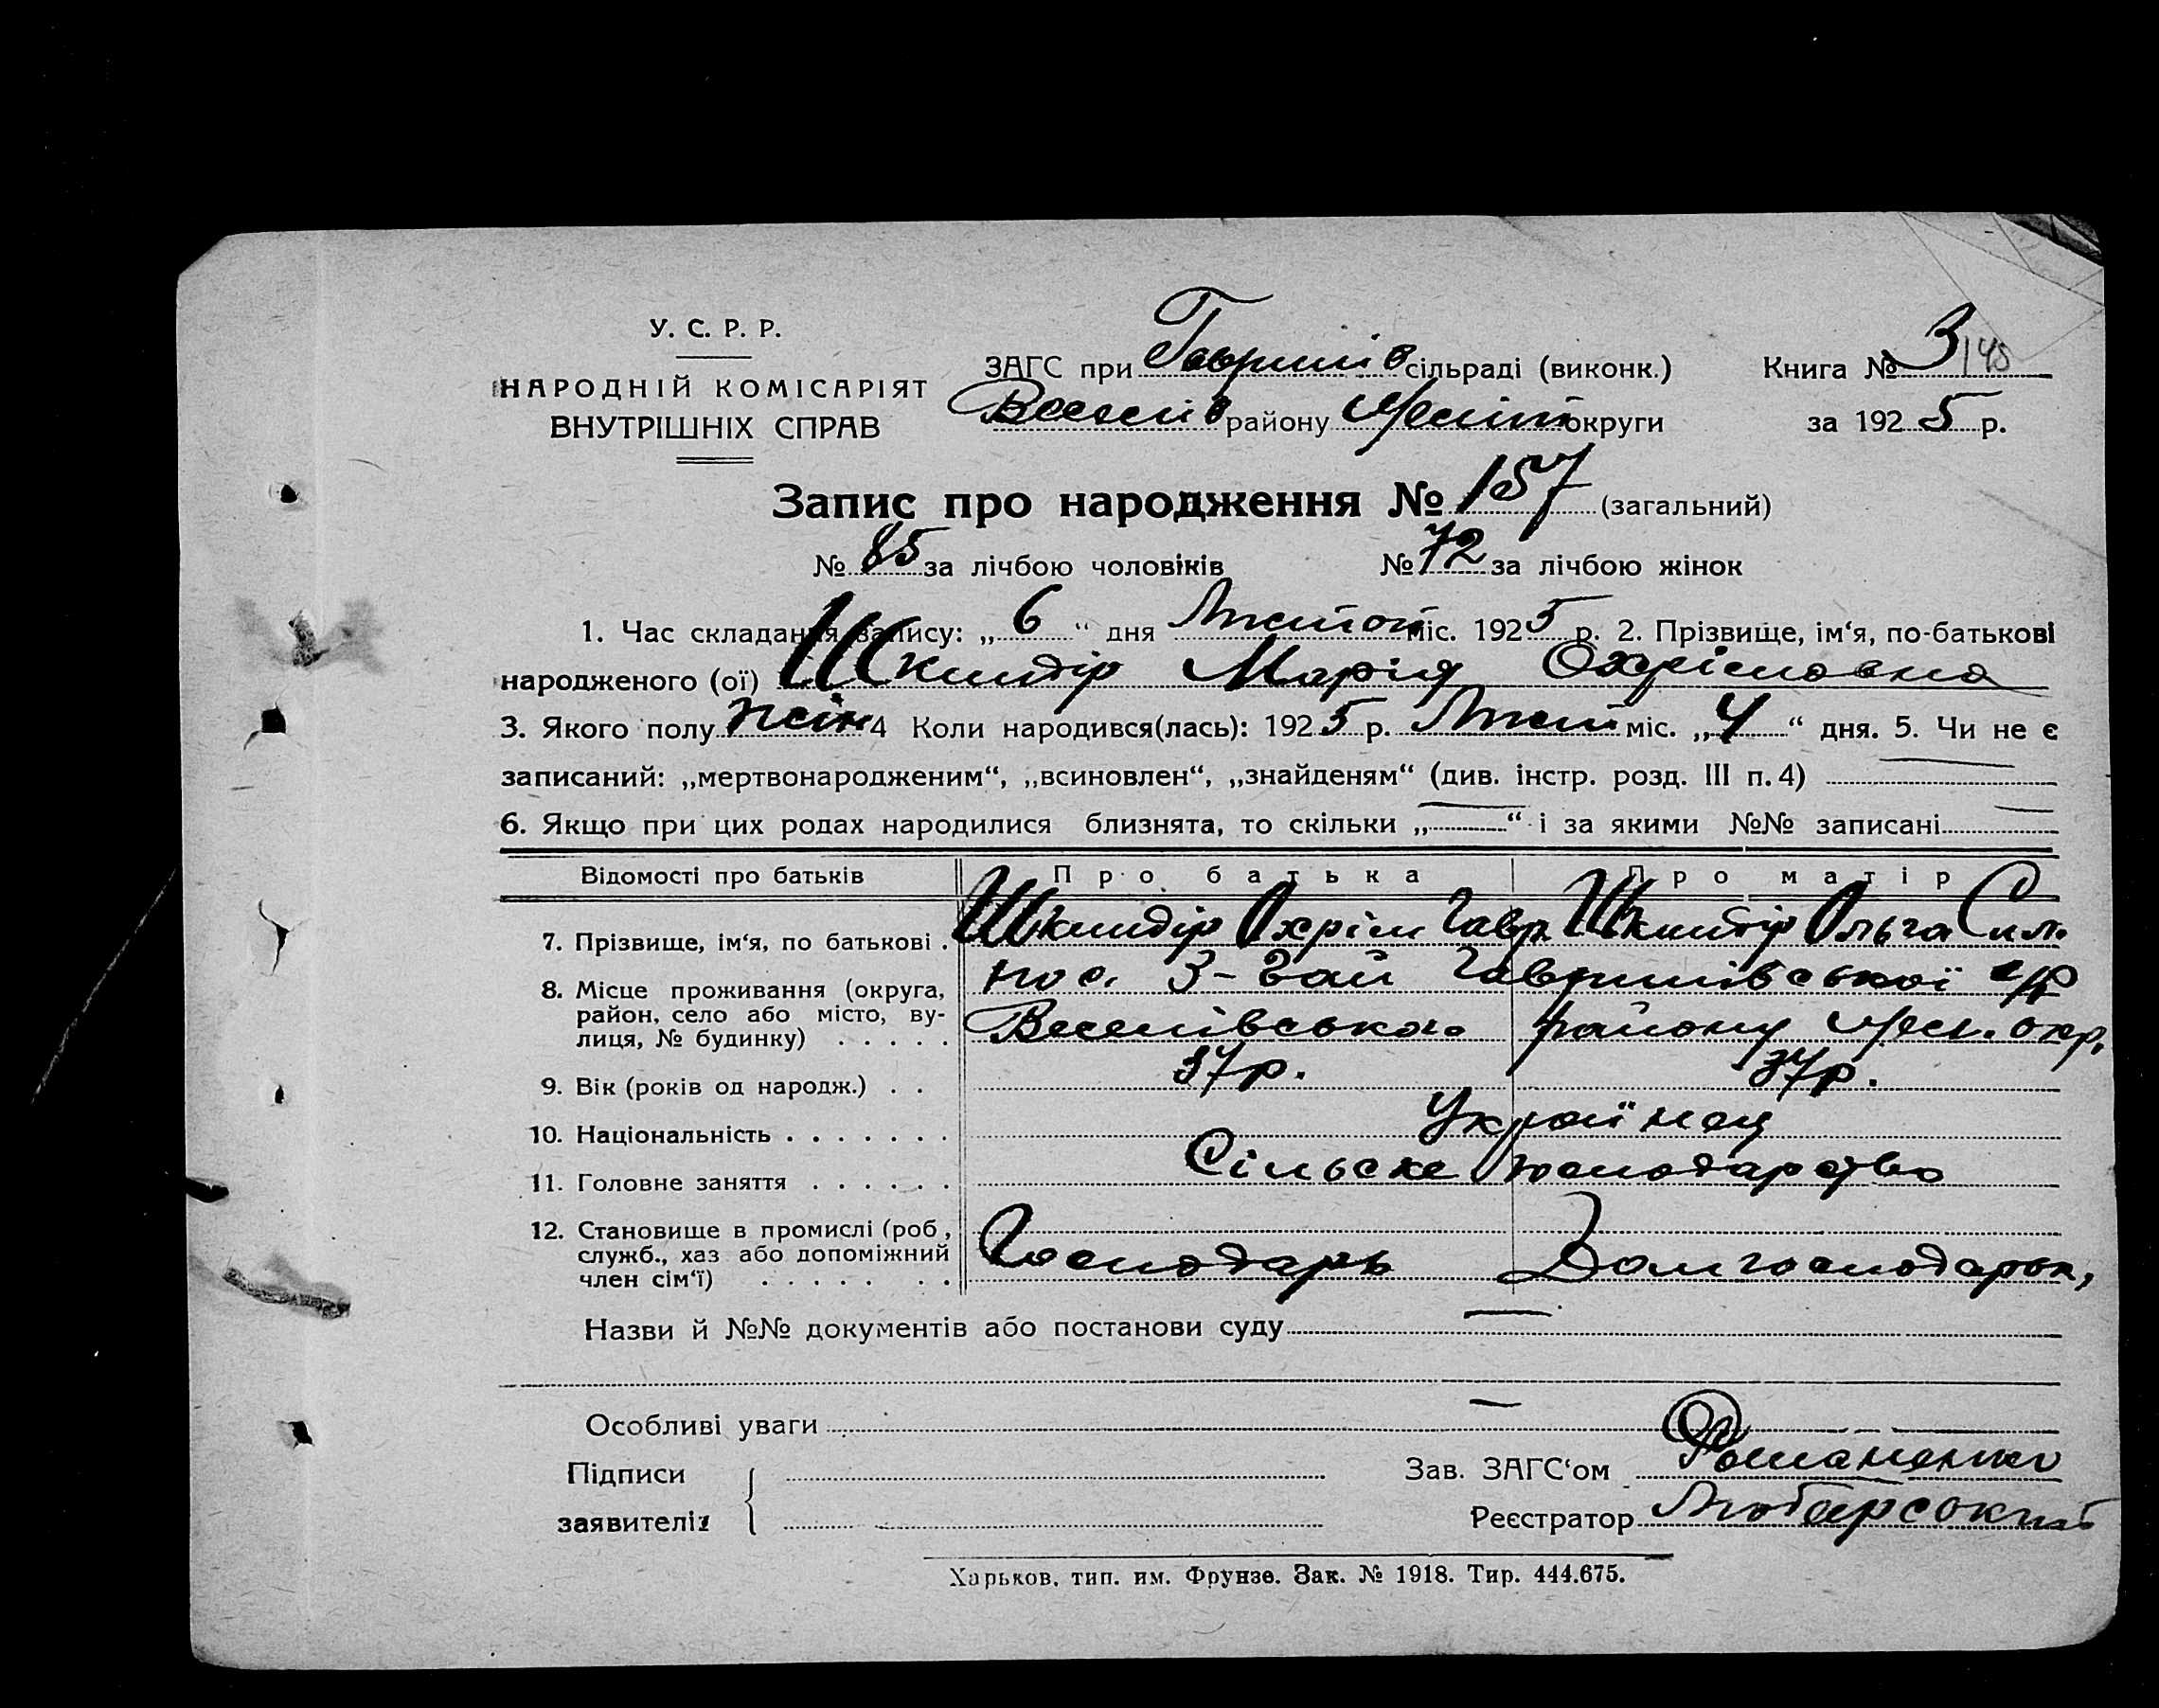 У. С. Р. Р.
НАРОДНІЙ КОМІСАРІЯТ
ВНУТРІШНІХ СПРАВ
ЗАГС при Гаврилів сільраді (виконк.)
Веселів району округи
Книга № 3 145
за 1925 р.
Запис про народження № 157 (загальний)
№ 85 за лічбою чоловіків № 72 за лічбою жінок
1. Час складання запису: „6“ дня Лютого міс. 1925 р. 2. Прізвище, ім‘я, по-батькові
народженого (ої) Шкиндір Марія Охрімовна
3. Якого полу жін 4 Коли народився(лась): 1925 р. Лют міс. „4“ дня. 5. Чи не є
записаний: „мертвонародженим“, „всиновлен“, „знайденям“ (див. інстр. розд. III п. 4) —
6. Якщо при цих родах народилися близнята, то скільки „—“ і за якими №№ записані —
Відомості про батьків Про батька Про матір
7. Прізвище, ім‘я, по батькові . Шкиндір Охрім Гавр. Шкиндір Ольга
8. Місце проживання (округа,
район, село або місто, ву-
лиця, № будинку) . . . . .
пос. 3-Гай Гаврилівської с/р
Веселівського району окр.
9. Вік (років од народж.) . . 37р. 37р.
10. Національність . . . . . . . Українец
11. Головне заняття . . . . . . Сільске господарство
12. Становище в промислі (роб,
служб., хаз або допоміжний
член сім‘ї) . . . . . . .
Господарь Домгосподарок,
Назви й №№ документів або постанови суду —
Особливі уваги —
Підписи
заявителів
Зав. ЗАГС‘ом Романенко
Реєстратор
Харьков, тип. им. Фрунзе. Зак. № 1918. Тир. 444.675.